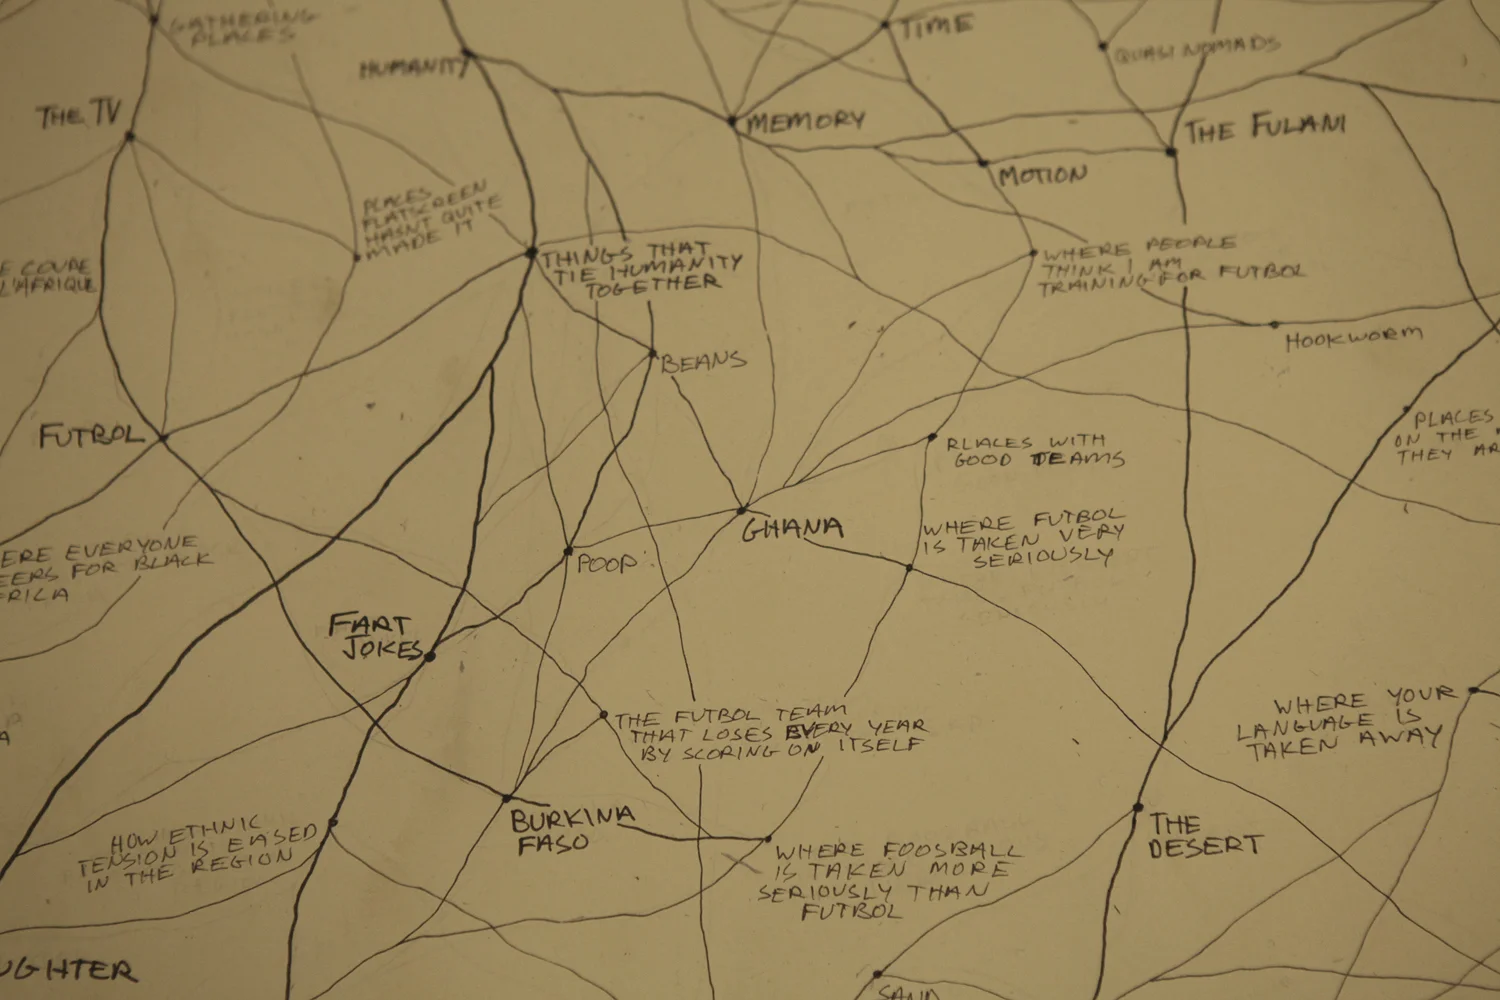 GATHERING
PLACES
TIME
QUASI NOMADS
HUMANITY
THE TV
MEMORY
THE FULANI
MOTION
PLACES
FLATSCREEN
HASNT QUITE
MADE IT
THINGS THAT
TIE HUMANITY
TOGETHER
WHERE PEOPLE
THINK I AM
TRAINING FOR FUTBOL
COUPE
L'AFRIQUE
HOOKWORM
BEANS
FUTBOL
PLACES WITH
GOOD TEAMS
PLACES
ON THE
THEY
GHANA
WHERE FUTBOL
IS TAKEN VERY
SERIOUSLY
POOP
EVERYONE
FOR BLACK
FART
JOKES
WHERE YOUR
LANGUAGE IS
TAKEN AWAY
THE FUTBOL TEAM
THAT LOSES EVERY YEAR
BY SCORING ON ITSELF
BURKINA
FASO
THE
DESERT
HOW ETHNIC
TENSION IS EASED
IN THE REGION
WHERE FOOSBALL
IS TAKEN MORE
SERIOUSLY THAN
FUTBOL
UGHTER
SAND